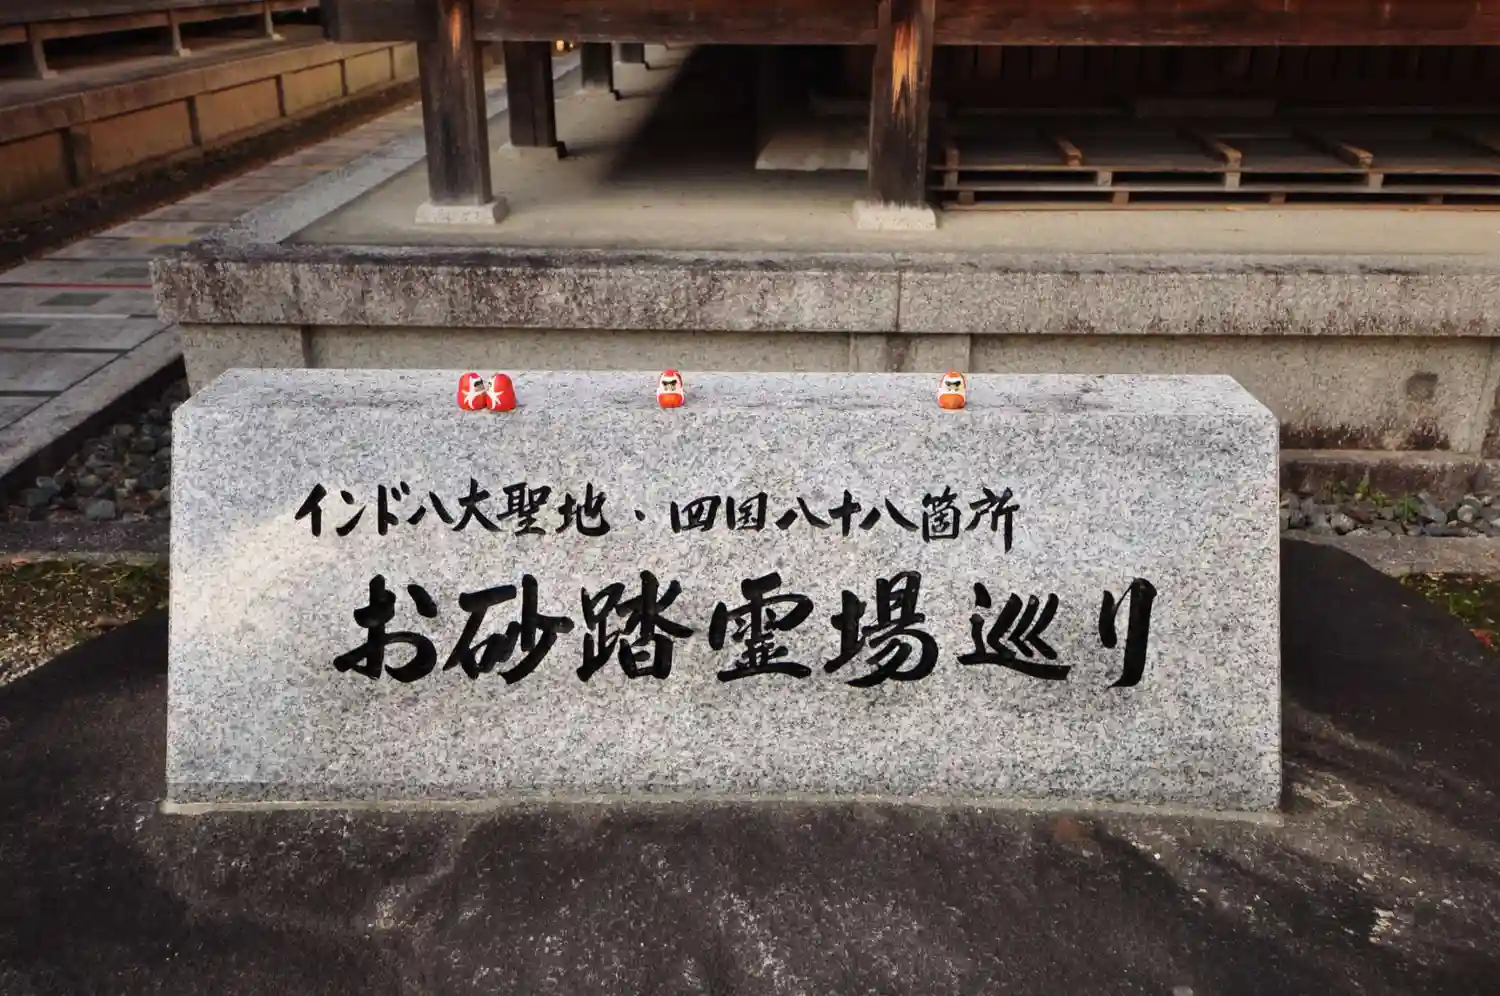 インド八大聖地・四国八十八箇所
お砂踏霊場巡り